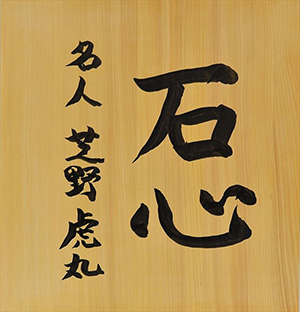 石心
名人 芝野虎丸